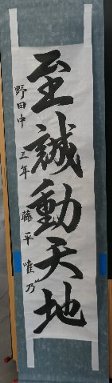 至誠動天地
野田中 三年 藤平 唯乃